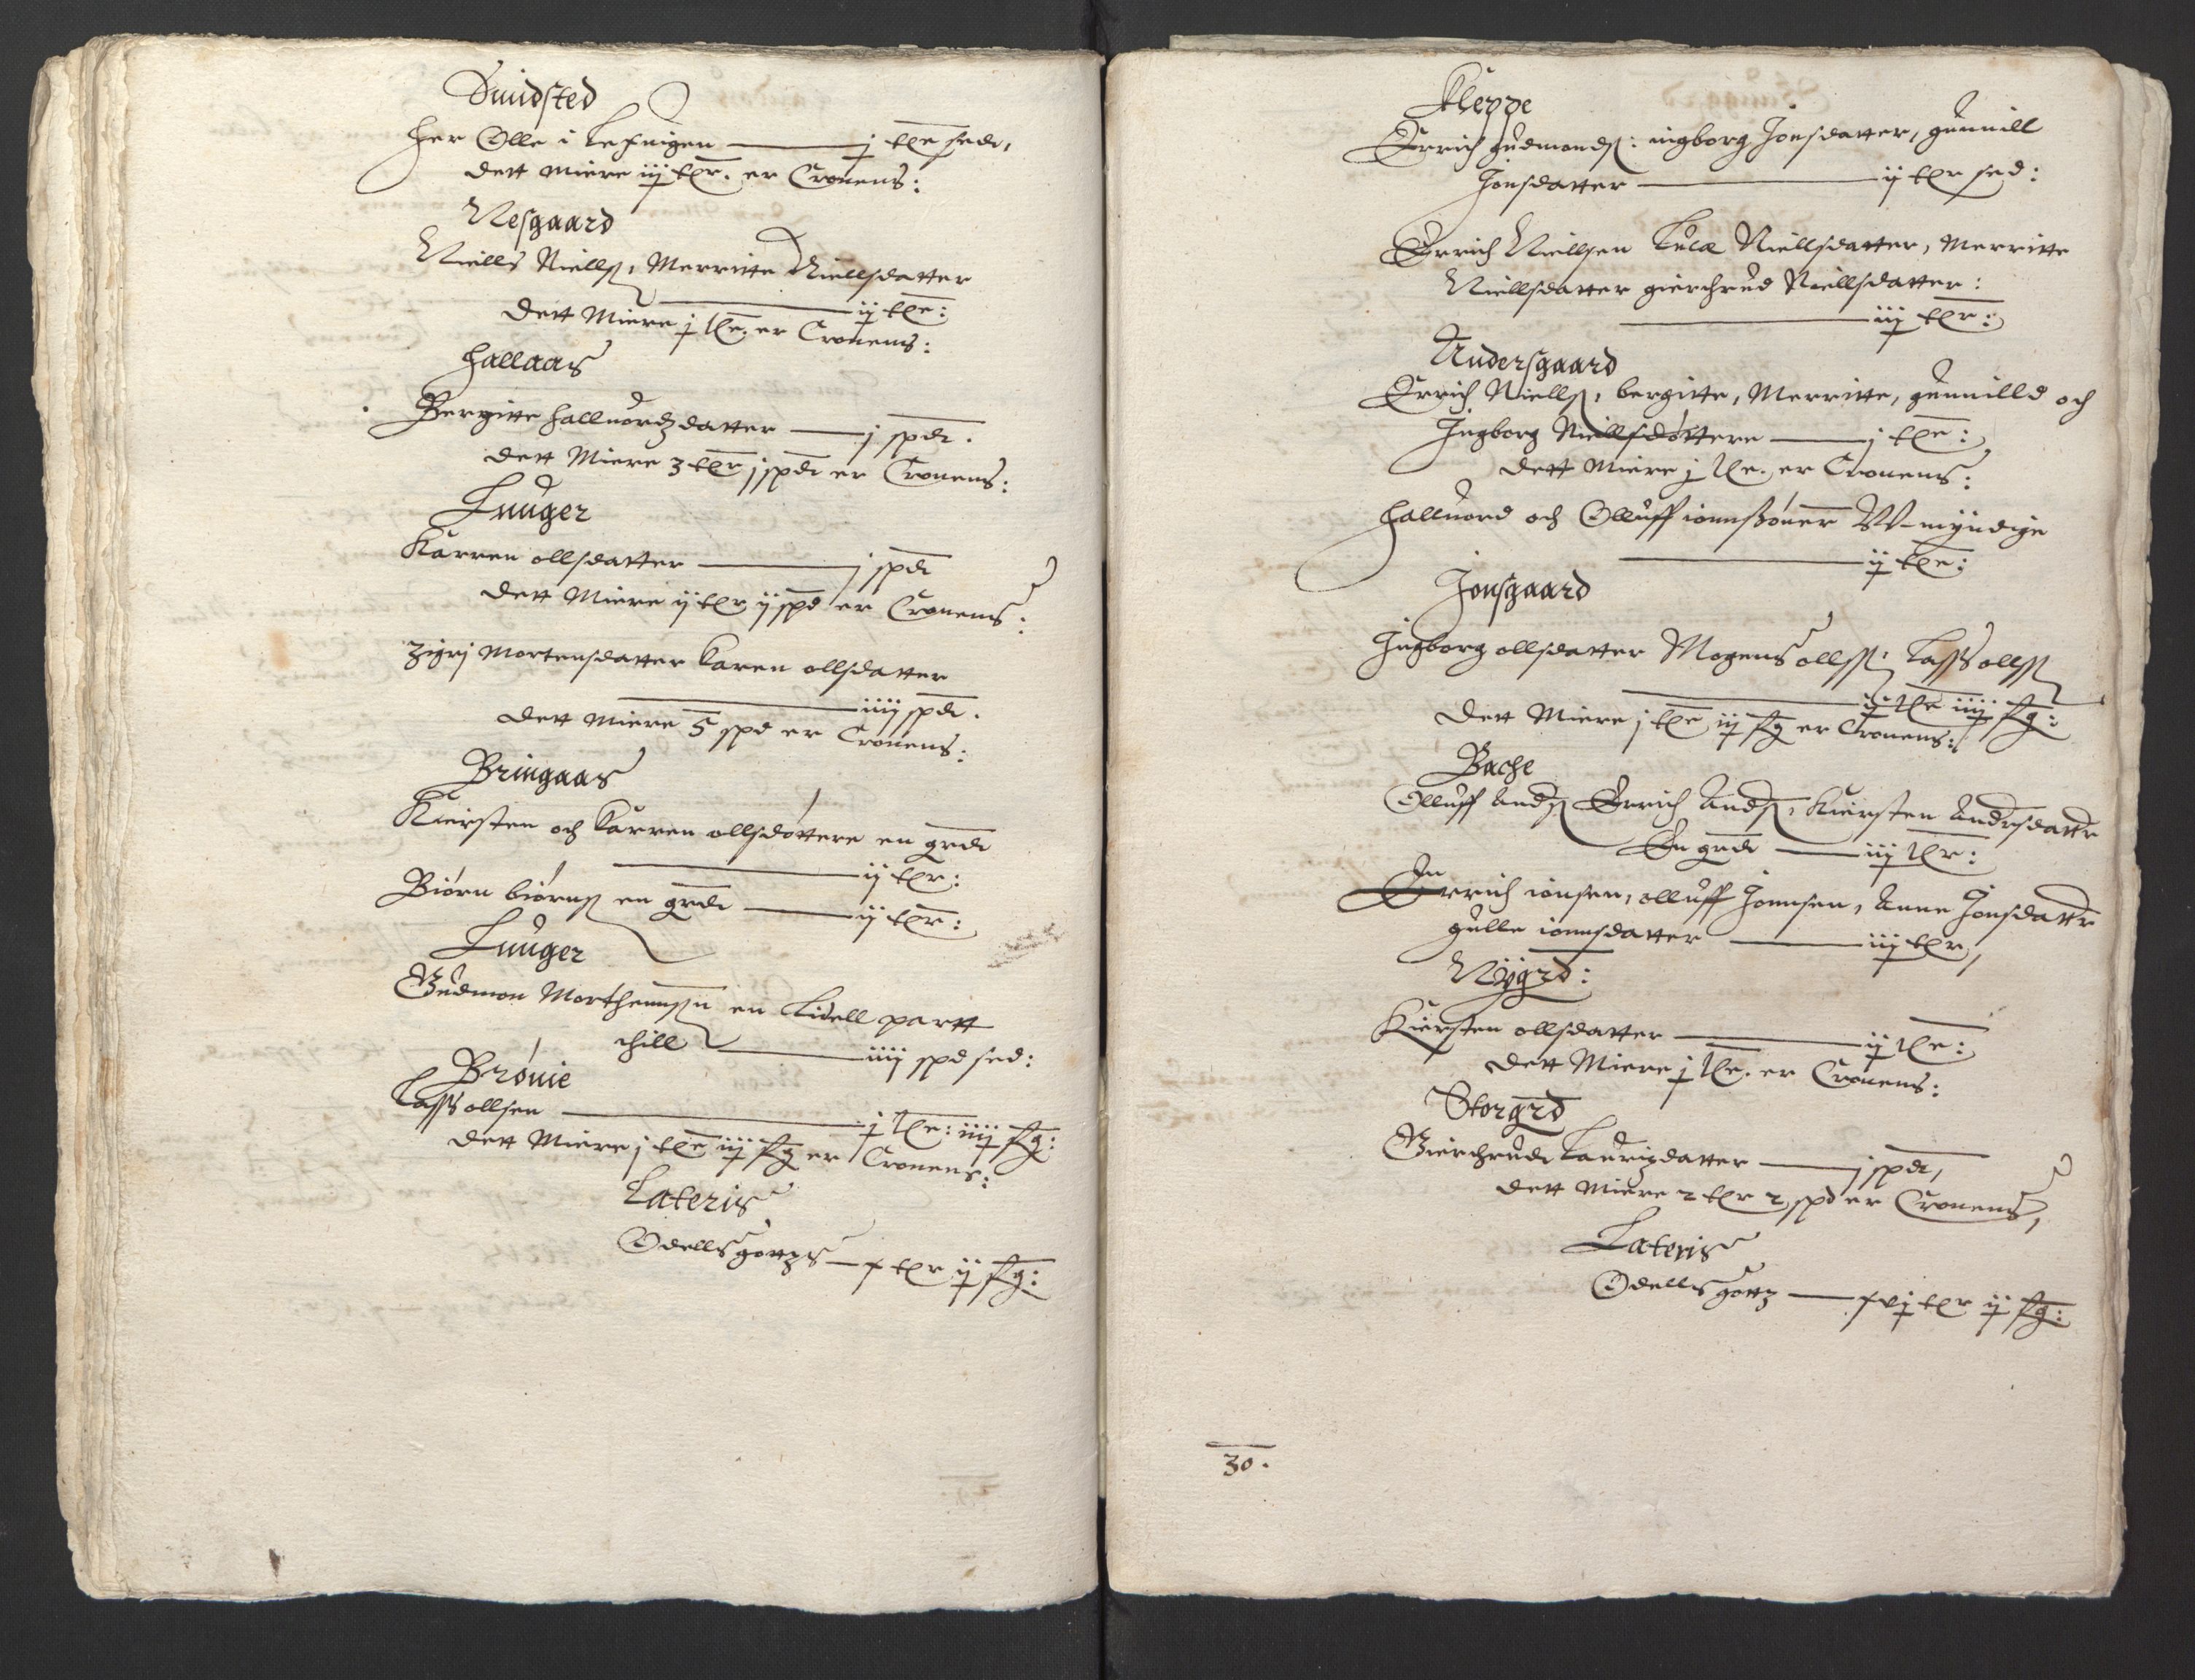 Smidsted
Her Olle i Lefnigen — j tłr sedt,
dett Miere iij tłr. er Cronens:
Nesgaard
Niells Niellß, Merritte Niellsdatter
— ij tłr:
Dett Miere j tłr. er Cronens:
Hallaas
Bergitte Halluordzdatter — j spdt.
dett Miere 3 tłr j spdt er Cronens:
Luuger
Karren ollsdatter — j spdt
dett Miere ij tłr ij spd er Cronens:
Zigrj Mortensdatter Karen ollsdatter
— iiij spdt.
dett Miere 5 spd er Cronens:
Bringaas
Kiersten och Karren ollsdøttere en grdt
— ij tłr:
Biørn biørnß en grdt — ij tłr:
Luuger
Gudmon Morthennßn en Lidell partt
— iiij spd sed:
Brønie
Lasss ollsen — j tłr: iiij ſg:
dett Miere j tłr iij ſg er Cronens:
Lateris
Odellsgottzs — x tłr ij ſg:
Kleppe
Errich gudmondß: ingborg Jonsdatter, gunnill
Jonsdatter — ij tłr sed:
Errich Niellsen Niellsdatter, Merritte
Niellsdatter gierthrud Niellsdatter:
— iij tłr:
Andersgaard
Errich Niellß, bergitte, Merritte, gunnilld och
Jngborg Niellsdøttere — j tłr:
dett Miere j tłr. er Cronens:
Halluord och Olluff ionnßøner W-myndige
— ij tłr:
Jonsgaard
Jngborg ollsdatter Mogens ollsß, Lasss ollsß
— ij tłr iiij ſg:
Dett Miere j tłr iij ſg er Cronens:
Bache
Olluff Andß Errich Andß, Kiersten Andrsdattr
En grdt — iij tłr:
Errich ionsen, olluff Jonnsen, Anne Jonsdattr
gulle ionnsdatter — iij tłr,
Nÿgrd:
Kiersten ollsdatter — ij tłr:
dett Miere j tłr. er Cronens:
Storgrd
Gierthrudt Lauritzdatter — j spdt,
dett Miere 2 tłr 2 spd er Cronens,
Lateris
Odellsgottz — xvj tłr ij ſg:
30.